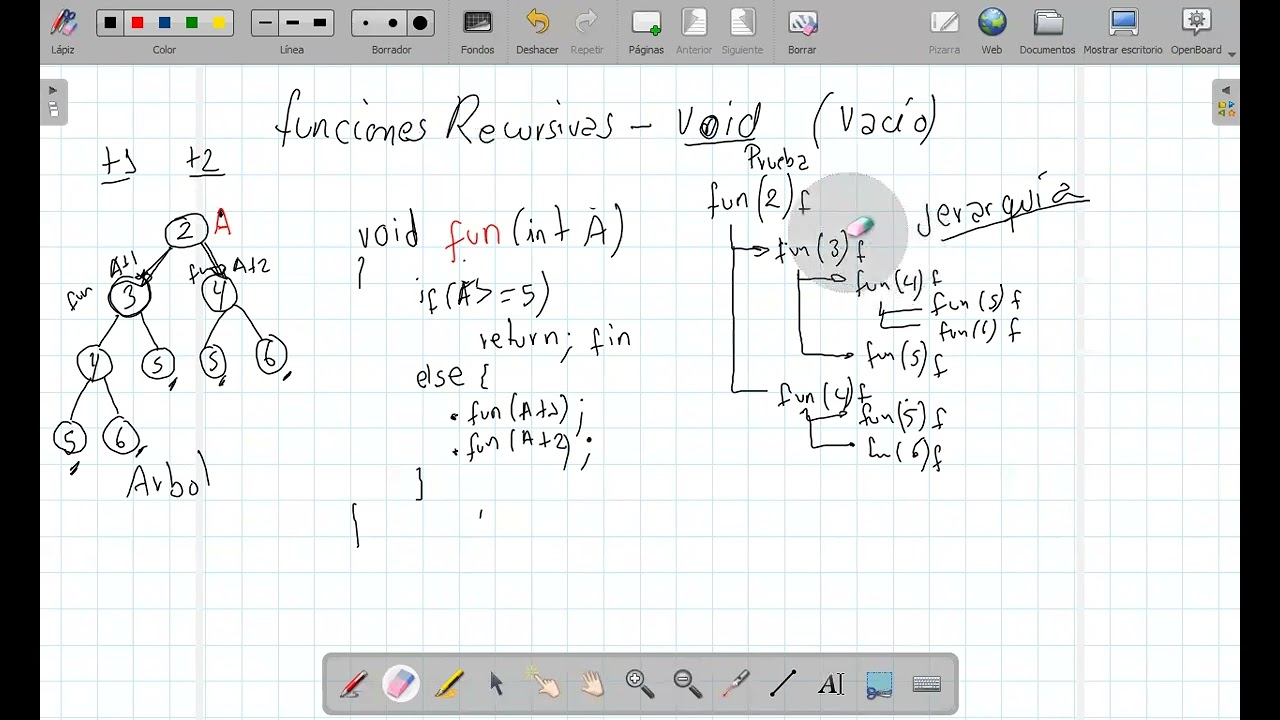 Lápiz Color Línea Borrador Fondos Deshacer Repetir Páginas Anterior Siguiente Borrar Pizarra Web Documentos Mostrar escritorio OpenBoard
funciones Recursivas - void (Vacío)
+1 +2
2 A
A+1 fun A+2
fun 3 4
4 5 5 6
5 6
Arbol
void fun (int A)
{
if(A>=5)
return; fin
else {
• fun(A+1);
• fun(A+2);
}
Prueba
fun(2) f
fun(3) f
fun(4) f
fun(5) f
fun(6) f
fun(5) f
fun(4) f
fun(5) f
fun(6) f
Jerarquía
AI